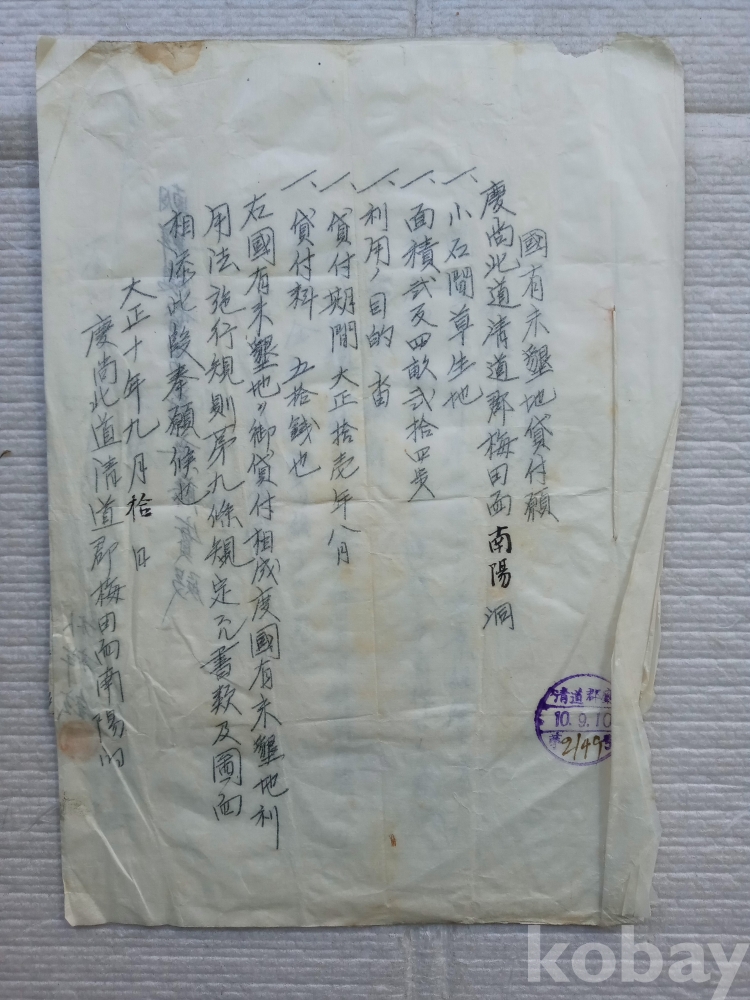 國有未墾地貸付願
慶尚北道淸道郡梅田面南陽洞
一、小石間草生地
一、面積弐反四畝弐拾四歩
一、利用ノ目的 畓
一、貸付期間 大正拾壱年八月
一、貸付料 五拾錢也
右國有未墾地ノ御貸付相成度國有未墾地利
用法施行規則第九條規定ノ書類及圖面
相添此段奉願候也
大正十年九月拾日
慶尚北道淸道郡梅田面南陽洞
淸道郡
10.9.10
第2149號
kobay